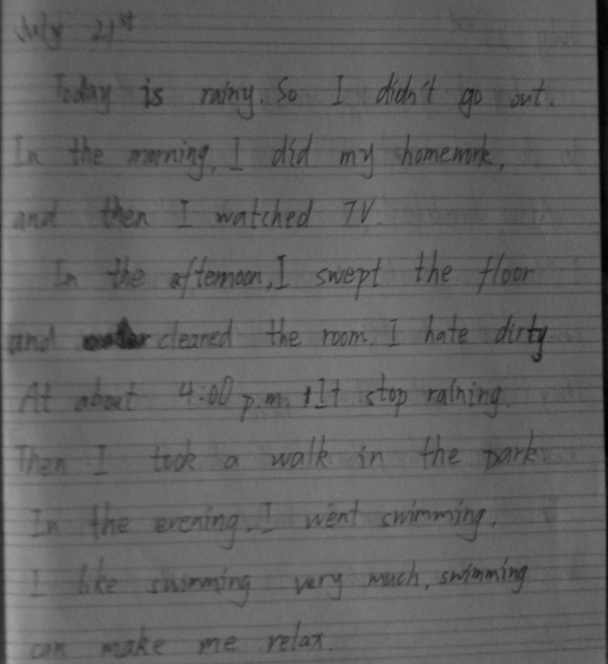 July 21st
Today is rainy. So I didn't go out.
In the morning, I did my homework,
and then I watched TV.
In the afternoon, I swept the floor
and cleaned the room. I hate dirty.
At about 4:00 p.m. It stop raining.
Then I took a walk in the park.
In the evening, I went swimming.
I like swimming very much, swimming
can make me relax.